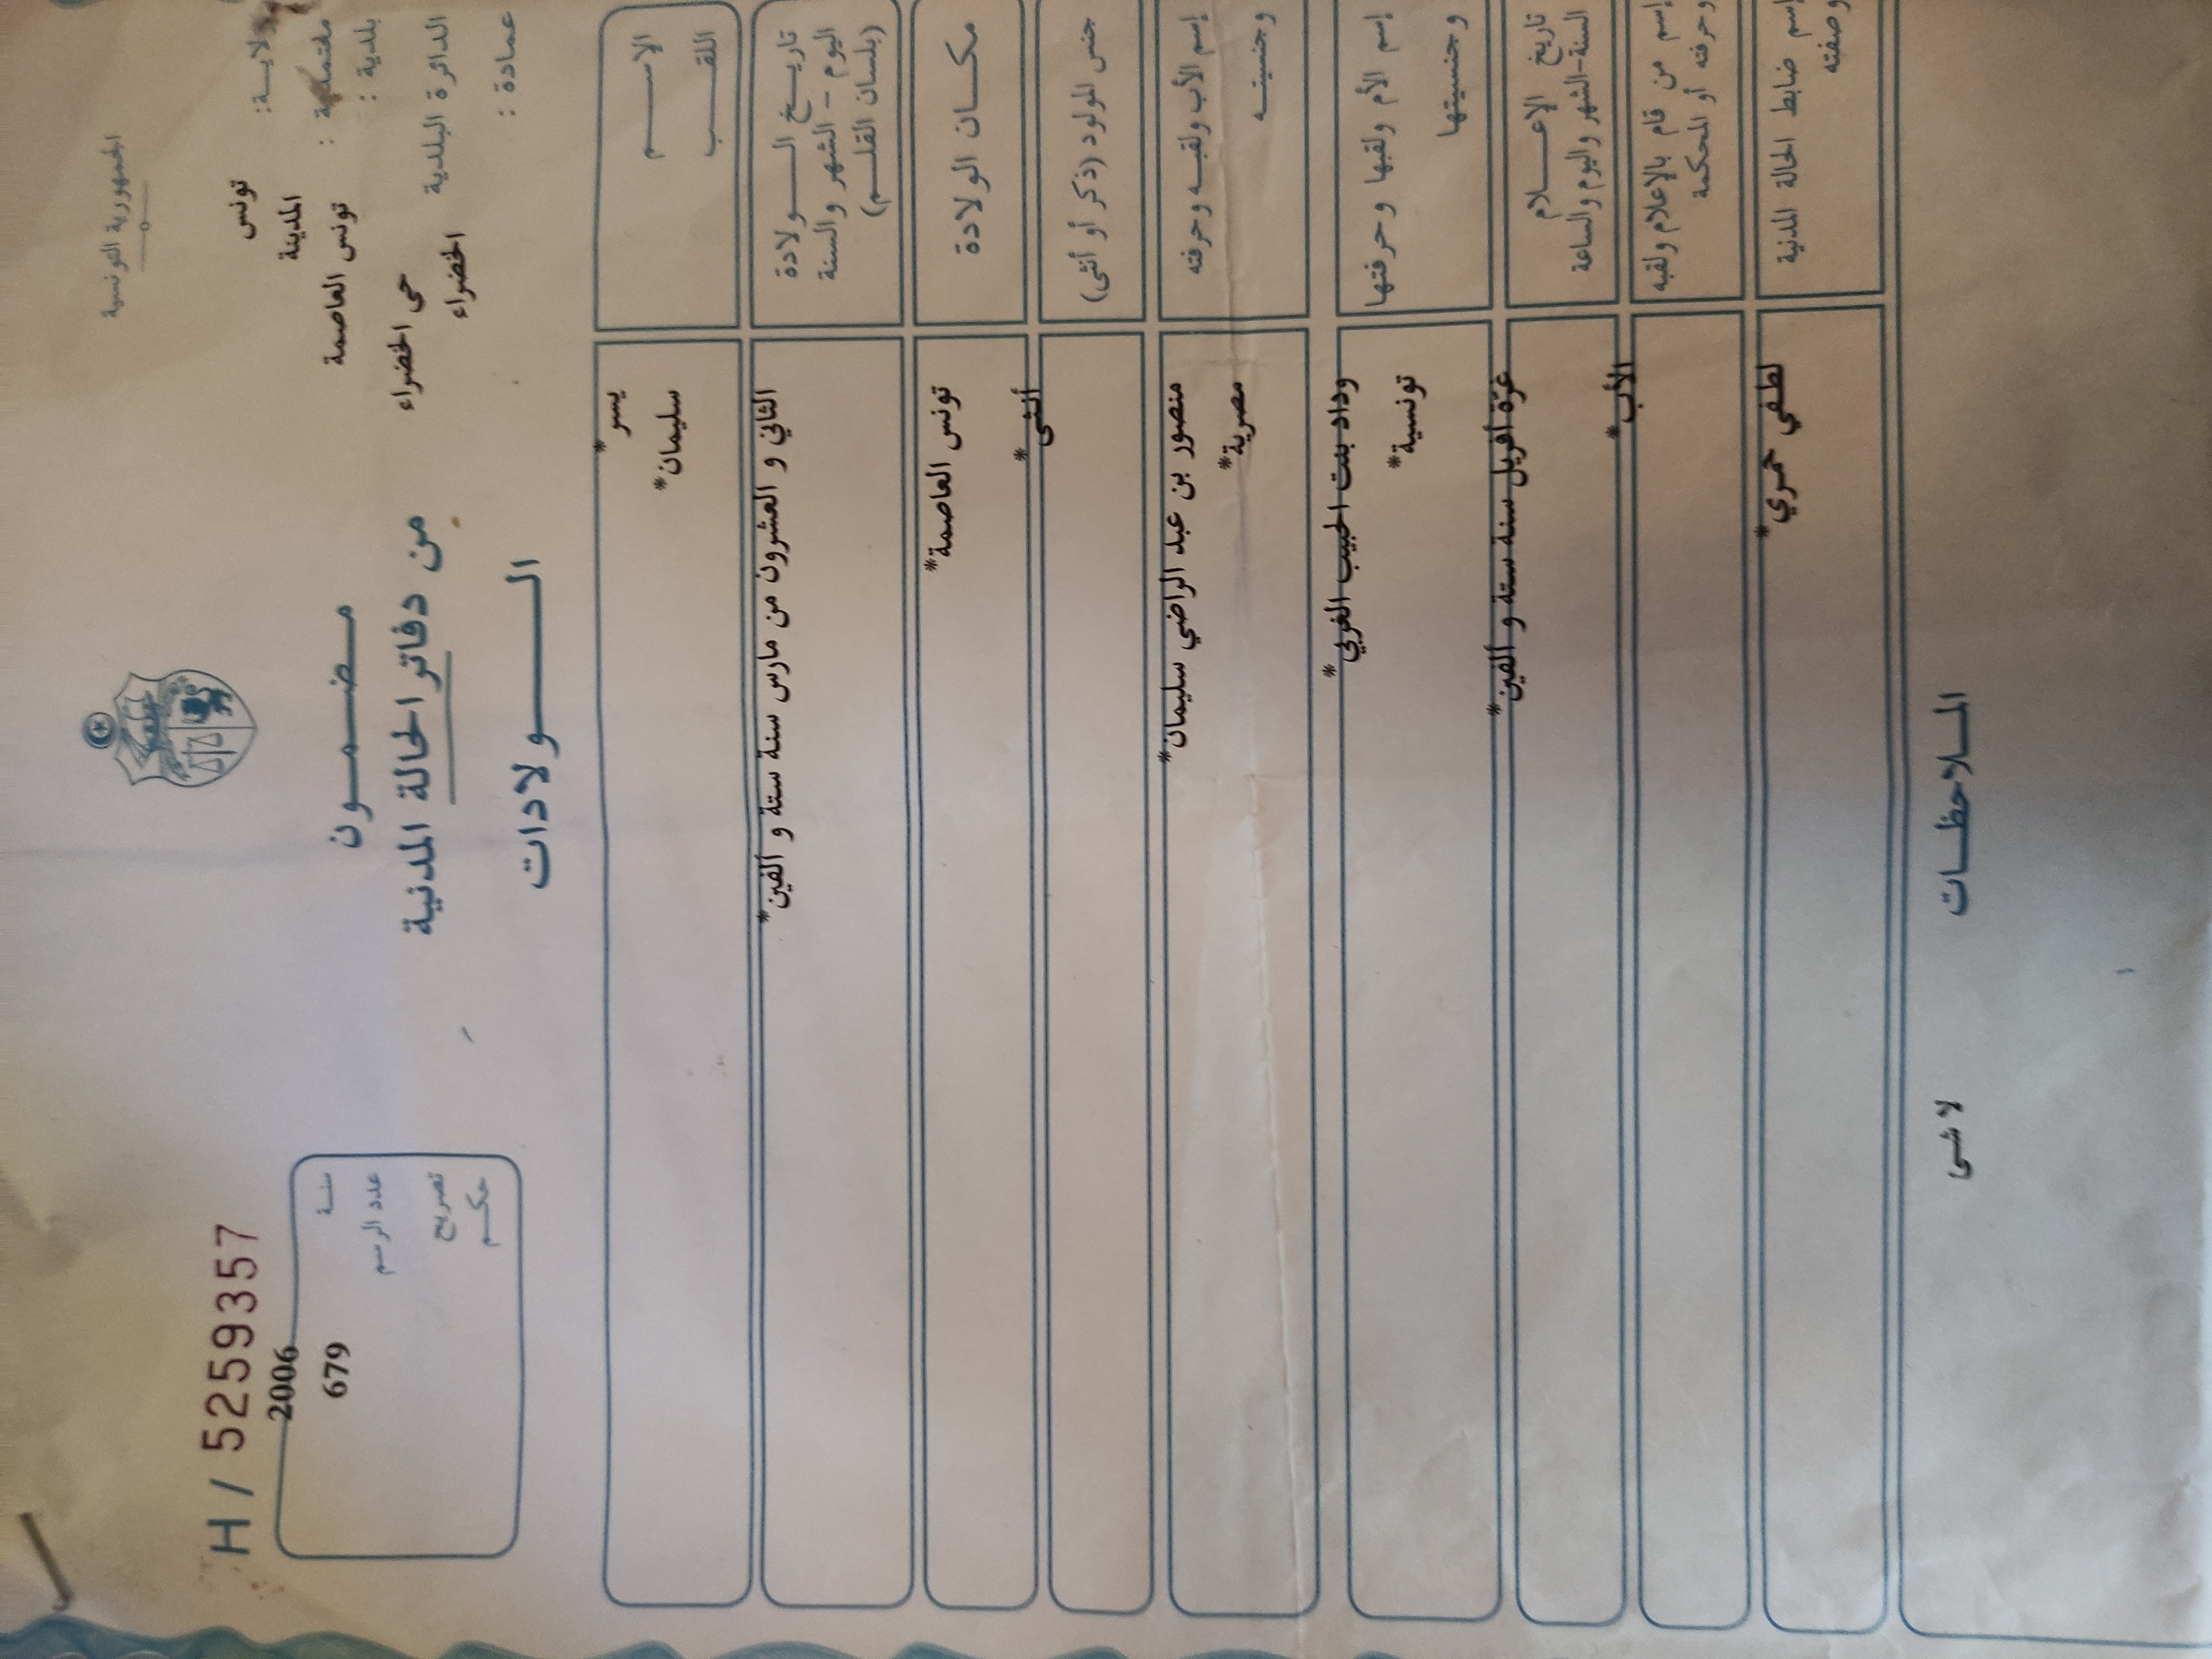 الجمهورية التونسية
ولاية: تونس
المدينة
معتمدية : تونس العاصمة
بلدية :
حي الخضراء
الدائرة البلدية الخضراء
عمادة :
مضمون
من دفاتر الحالة المدنية
الولادات
H / 5259357
2006
سنة
679
عدد الرسم
تصريح
حكم
الاسم
يسر*
اللقب
سليمان*
تاريخ الولادة
اليوم - الشهر والسنة
(بلسان القلم)
الثاني و العشرون من مارس سنة ستة و ألفين*
مكان الولادة
تونس العاصمة*
جنس المولود (ذكر أو أنثى)
أنثى*
إسم الأب ولقبه وحرفته
منصور بن عبد الراضي سليمان*
وجنسيته
مصرية*
إسم الأم ولقبها وحرفتها
وداد بنت الحبيب الغربي*
وجنسيتها
تونسية*
تاريخ الإعلام
السنة-الشهر واليوم والساعة
غرّة أفريل سنة ستة و ألفين*
إسم من قام بالإعلام ولقبه
وحرفته أو المحكمة
الأب*
إسم ضابط الحالة المدنية
وصفته
لطفي حمري*
الملاحظات
لا شى